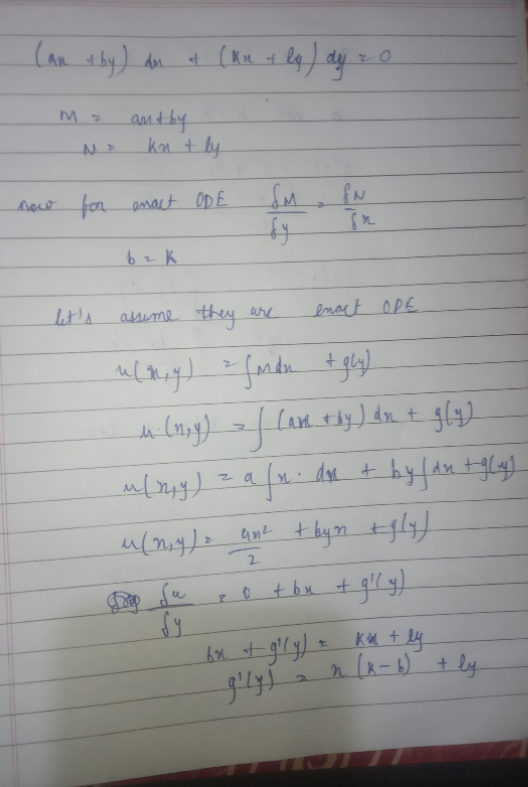 (ax + by) dx + (kx + ly) dy = 0
M = ax + by
N = kx + ly
now for exact ODE δM/δy = δN/δx
b = k
let's assume they are exact ODE
u(x,y) = ∫Mdx + g(y)
u(x,y) = ∫(ax + by) dx + g(y)
u(x,y) = a∫x·dx + by∫dx + g(y)
u(x,y) = ax²/2 + byx + g(y)
δu/δy = 0 + bx + g'(y)
bx + g'(y) = kx + ly
g'(y) = x(k-b) + ly